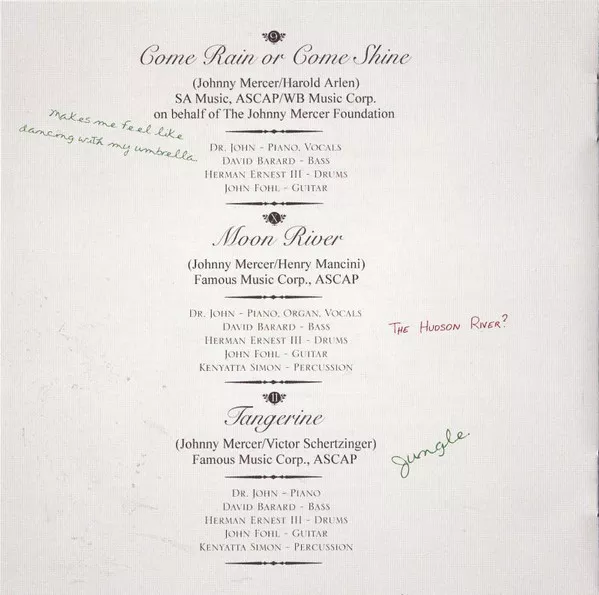 9
Come Rain or Come Shine
(Johnny Mercer/Harold Arlen)
SA Music, ASCAP/WB Music Corp.
on behalf of The Johnny Mercer Foundation
makes me feel like
dancing with my umbrella.
Dr. John – Piano, Vocals
David Barard – Bass
Herman Ernest III – Drums
John Fohl – Guitar
X
Moon River
(Johnny Mercer/Henry Mancini)
Famous Music Corp., ASCAP
Dr. John – Piano, Organ, Vocals
David Barard – Bass
Herman Ernest III – Drums
John Fohl – Guitar
Kenyatta Simon – Percussion
The Hudson River?
11
Tangerine
(Johnny Mercer/Victor Schertzinger)
Famous Music Corp., ASCAP
Jungle.
Dr. John – Piano
David Barard – Bass
Herman Ernest III – Drums
John Fohl – Guitar
Kenyatta Simon – Percussion